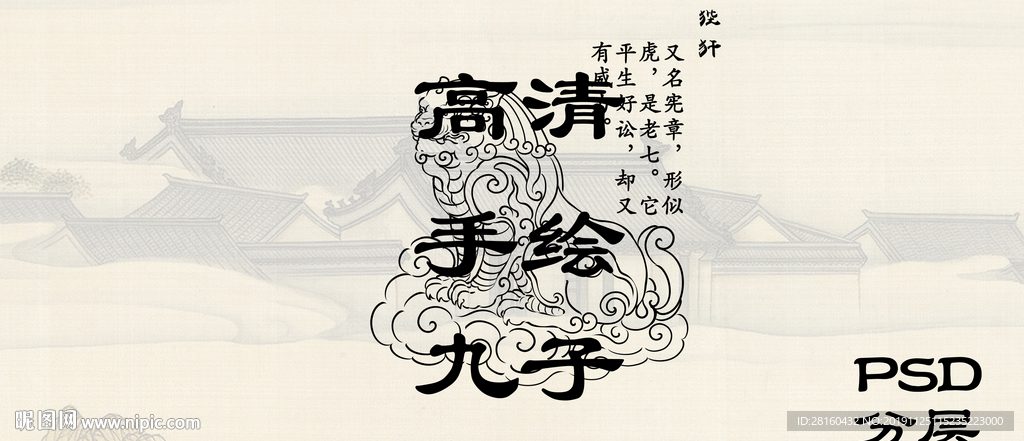 狴犴
又名宪章，形似
虎，是老七。它
平生好讼，却又
有威。
高清
手绘
九子
PSD
分层
昵图网 www.nipic.com
ID:28160432 NO:20191125115235223000